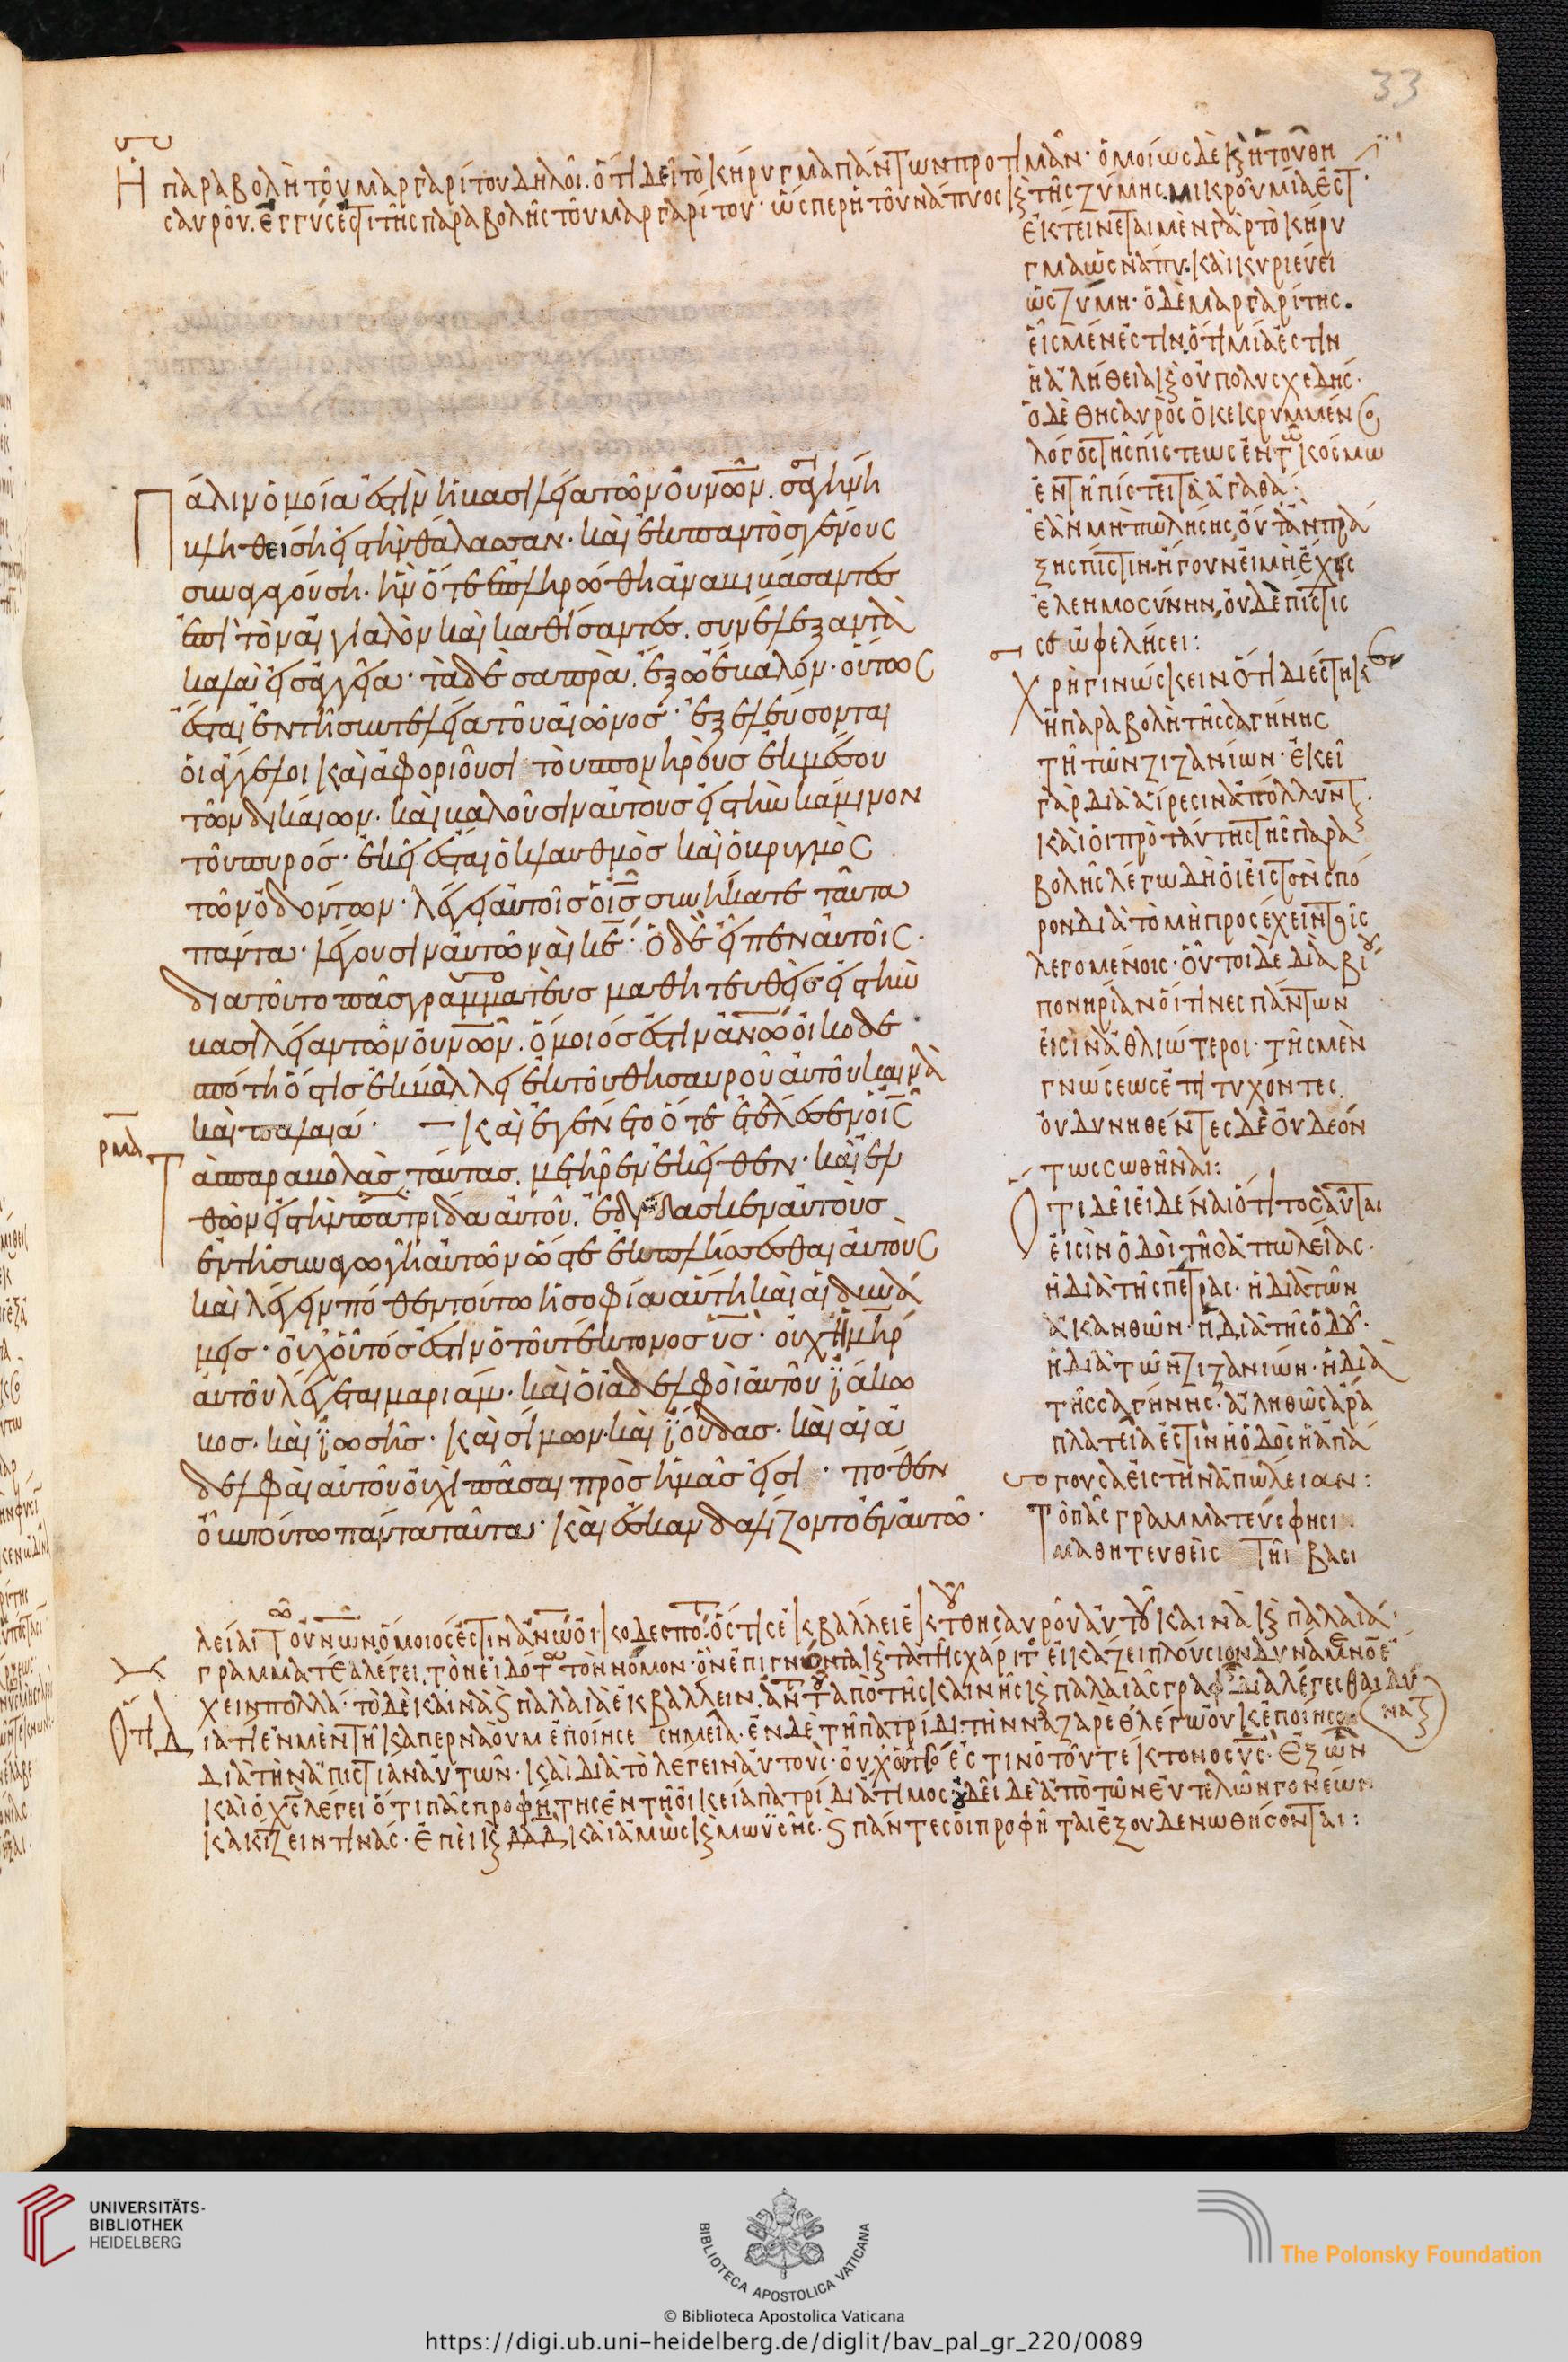 33
Ἡ παραβολὴ τοῦ μαργαρίτου δηλοῖ. ὅτι δεῖ τὸ κήρυγμα πάντων προτιμᾶν· ὁμοίως δὲ κ ἡ τοῦ θη
σαυροῦ. ἐγγύς ἐστι τῆς παραβολῆς τοῦ μαργαρίτου· ὥσπερ ἡ τοῦ νάπυος κ τῆς ζύμης. μικροῦ μία ἐστ
ἐκτείνεται μὲν γὰρ τὸ κήρυ
γμα ὡς νάπυ. καὶ κυριεύει
ὡς ζύμη· ὁ δὲ μαργαρίτης.
εἷς μέν ἐστιν. ὅτι μία ἐστὶν
ἡ ἀλήθεια κ οὐ πολυσχεδής·
ὁ δὲ θησαυρὸς ὁ κεκρυμμένο
λόγος τῆς πίστεως ἐν τῶ κόσμω
ἐν τῆ πίστει τὰ ἀγαθά·
ἐὰν μὴ πωλήσης, οὐ τὰν πρά
ξης πίστιν. ἤγουν εἰ μὴ ἔχης
ἐλεημοσύνην, οὐδὲ πίστις
σε ὠφελήσει:
Χρὴ γινώσκειν ὅτι διέστηκεν
ἡ παραβολὴ τῆς σαγήνης
τῆ τῶν ζιζανίων· ἐκεῖ
γὰρ διὰ αἵρεσιν ἀπόλλυντ
καὶ οἱ πρὸ ταύτης τῆς παρα
βολῆς λέγω δὴ οἱ εἰς τὸν σπό
ρον διὰ τὸ μὴ προσέχειν τοῖς
λεγομένοις· οὗτοι δὲ διὰ βίου
πονηρίαν οἵτινες πάντων
εἰσὶν ἀθλιώτεροι· τῆς μὲν
γνώσεως ἐπιτυχόντες
οὐ δυνηθέντες δὲ οὐδ ἐον
τως σωθῆναι:
Ὅτι δεῖ εἰδέναι ὅτι τοσαῦται
εἰσὶν ὁδοὶ τῆς ἀπωλείας·
ἡ διὰ τῆς πέτρας· ἡ διὰ τῶν
ἀκανθῶν· ἡ διὰ τῆς ὁδοῦ·
ἡ διὰ τῶν ζιζανίων· ἡ διὰ
τῆς σαγήνης· ἀληθῶς ἄρα
πλατεῖα ἐστὶν ἡ ὁδὸς ἡ ἀπά
γουσα εἰς τὴν ἀπώλειαν:
Τὸ πᾶς γραμματεύς φησι
μαθητευθεὶς τῆι βασι
Πάλιν ὁμοία ἐστὶν ἡ βασιλεία τῶν οὐνῶν. σαγήνη
βληθείση εἰς τὴν θάλασσαν· καὶ ἐκ παντὸς γένους
συναγαγούση. ἣν ὅτε ἐπληρώθη ἀναβιβάσαντες
ἐπὶ τὸν αἰγιαλὸν καὶ καθίσαντες. συνέλεξαν τὰ
καλὰ εἰς ἀγγεῖα· τὰ δὲ σαπρὰ. ἔξω ἔβαλον· οὕτως
ἔσται ἐν τῆ συντελεία τοῦ αἰῶνος· ἐξελεύσονται
οἱ ἄγγελοι καὶ ἀφοριοῦσι τοὺς πονηροὺς ἐκ μέσου
τῶν δικαίων. καὶ βαλοῦσιν αὐτοὺς εἰς τὴν κάμινον
τοῦ πυρός· ἐκεῖ ἔσται ὁ κλαυθμὸς καὶ ὁ βρυγμὸς
τῶν ὀδόντων. λέγει αὐτοῖς ὁ ἰς συνήκατε ταῦτα
πάντα· λέγουσιν αὐτῶ ναὶ κε· ὁ δὲ εἶπεν αὐτοῖς.
διατοῦτο πᾶς γραμματεὺς μαθητευθεὶς εἰς τὴν
βασιλείαν τῶν οὐνῶν. ὅμοιός ἐστιν ἀνω οἰκοδε
σπότη ὅστις ἐκβάλλει ἐκ τοῦ θησαυροῦ αὐτοῦ καινὰ
καὶ παλαιά. — καὶ ἐγένετο ὅτε ἐτέλεσεν ὁ ἰς
ρμα
Τὰς παραβολὰς ταύτας. μετῆρεν ἐκεῖθεν· καὶ ἐλ
θὼν εἰς τὴν πατρίδα αὐτοῦ. ἐδίδασκεν αὐτοὺς
ἐν τῆ συναγωγῆ αὐτῶν ὥστε ἐκπλήσσεσθαι αὐτοὺς
καὶ λέγειν πόθεν τούτω ἡ σοφία αὕτη καὶ αἱ δυνά
μεις· οὐχ οὗτός ἐστιν ὁ τοῦ τέκτονος υς· οὐχ ἡ μηρ
αὐτοῦ λέγεται μαριάμ· καὶ οἱ ἀδελφοὶ αὐτοῦ ϊάκω
βος. καὶ ϊωσῆς· καὶ σίμων. καὶ ϊούδας. καὶ αἱ ἀ
δελφαὶ αὐτοῦ οὐχὶ πᾶσαι πρὸς ἡμᾶς εἰσι· πόθεν
οὖν τούτω πάντα ταῦτα· καὶ ἐσκανδαλίζοντο ἐν αὐτῶ·
λείαι τῶν οὐνῶν ὅμοιος ἐστὶν ἀνω οἰκοδεσπότ. ὅστις ἐκβάλλει ἐκ τοῦ θησαυροῦ αὐτοῦ καινὰ κ παλαιά·
γραμματέα λέγει. τὸν εἰδότα τὸν νόμον· ὃν ἐπιγνόντα κ τὰ τῆς χάριτ εἰκάζει πλούσιον δυνάμενον ἔ
χειν πολλά· τὸ δὲ καινὰ κ παλαιὰ ἐκβάλλειν. ἀντὶ τοῦ ἀπὸ τῆς καινῆς κ παλαιᾶς γραφῆς διαλέγεσθαι δύ
ναται
Ὅτι διατί ἐν μὲν τῆ καπερναοὺμ ἐποίησε σημεῖα. ἐν δὲ τῆ πατρίδι. τὴν ναζαρὲθ λέγω οὐκ ἐποίησε
διὰ τὴν ἀπιστίαν αὐτῶν· καὶ διὰ τὸ λέγειν αὐτούς· οὐχ οὗτός ἐστιν ὁ τοῦ τέκτονος υς. ἐξ ὧν
καὶ ὁ χς λέγει ὅτι πᾶς προφήτης ἐν τῆ οἰκεία πατρίδι ἄτιμος οὐ δεῖ δὲ ἀπὸ τῶν εὐτελῶν γονέων
κακίζειν τινάς· ἐπεὶ κ δαδ καὶ ἀμὼς κ μωϋσῆς. κ πάντες οἱ προφῆται ἐξουδενωθήσονται:
UNIVERSITÄTS-
BIBLIOTHEK
HEIDELBERG
BIBLIOTECA APOSTOLICA VATICANA
The Polonsky Foundation
© Biblioteca Apostolica Vaticana
https://digi.ub.uni-heidelberg.de/diglit/bav_pal_gr_220/0089